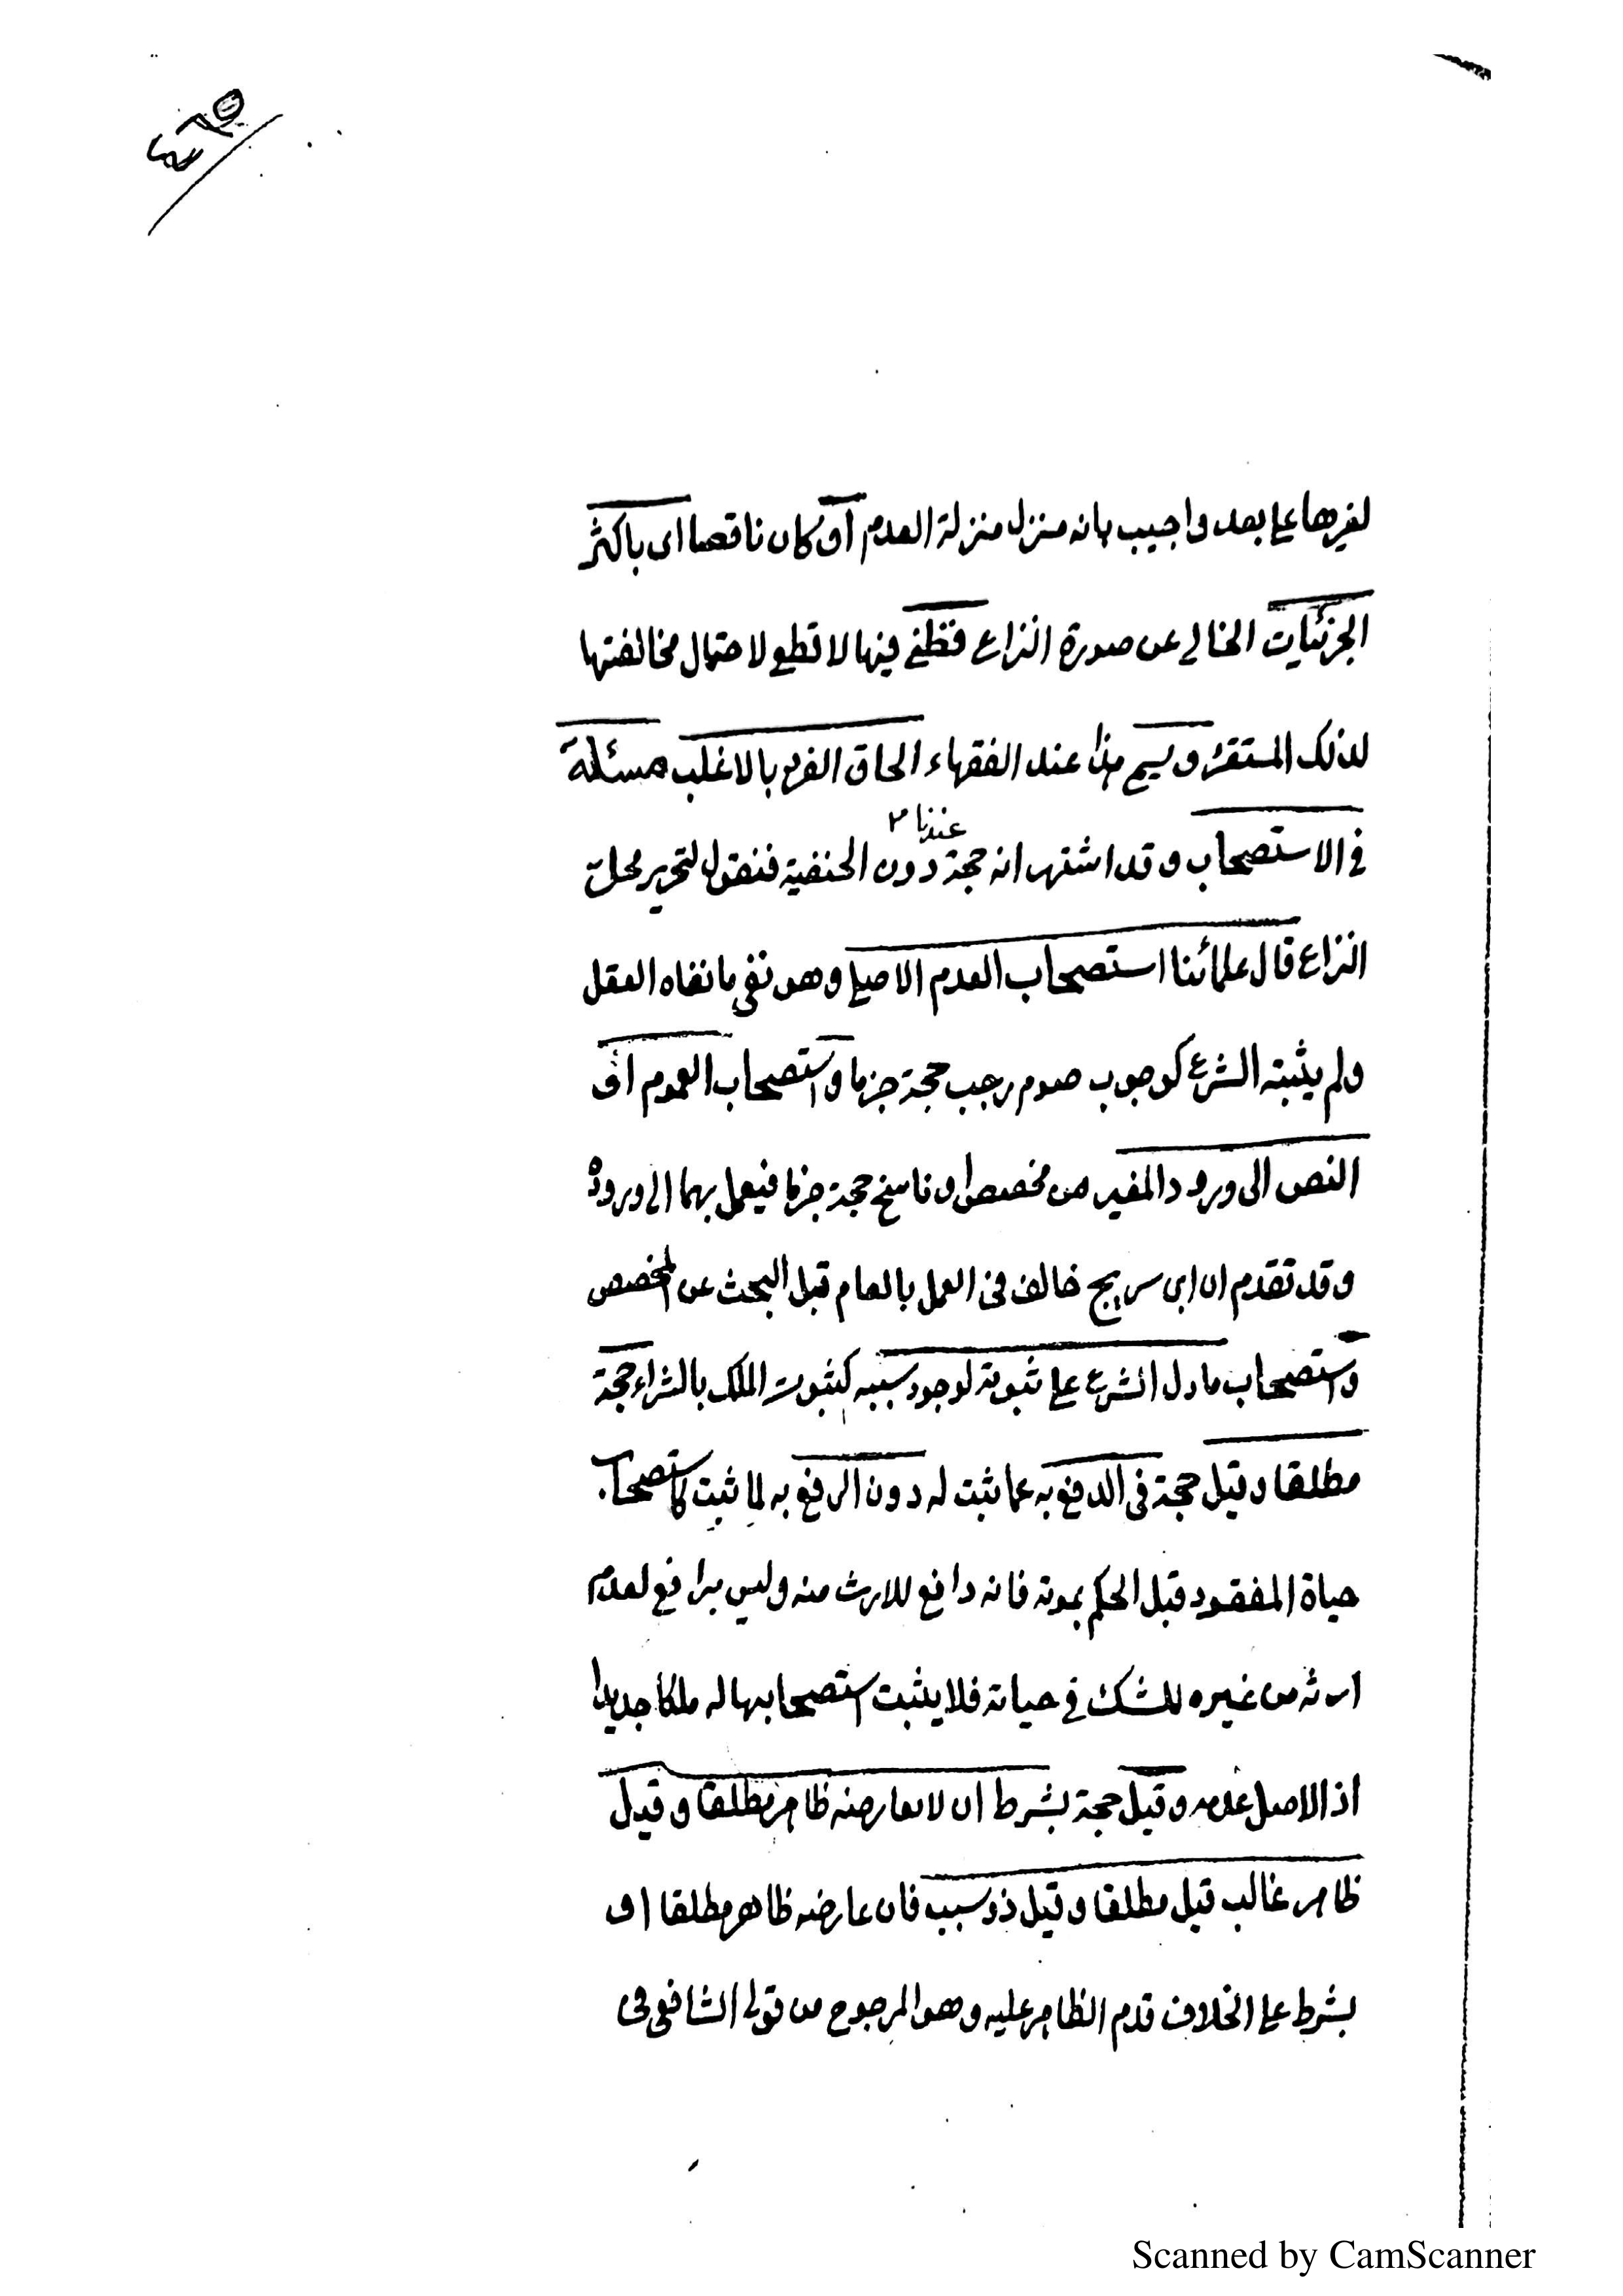 لغيرها على بعد واجيب بانه منزل منزلة العدم او كان ناقصا اى باكثر
الجزئيات الخالى عن صورة النزاع فظني فيها لا قطع لاحتمال مخالفتها
لذلك المستقرئ ويسمى هذا عند الفقهاء الحاق الفرد بالاغلب مسئلة
فى الاستصحاب وقد اشتهر انه حجة عندنا دون الحنفية فنقول لتحرير محل
النزاع قال علمائنا استصحاب العدم الاصلى وهو نفى ما نفاه العقل
ولم يثبته الشرع كوجوب صوم رجب حجة جزما واستصحاب العموم او
النص الى ورود المغير من مخصص او ناسخ حجة جزما فيعمل بهما الى وروده
وقد تقدم ان ابن سريج خالف فى العمل بالعام قبل البحث عن المخصص
واستصحاب ما دل الشرع على ثبوته لوجود سببه كثبوت الملك بالشراء حجة
مطلقا وقيل حجة فى الدفع به عما ثبت له دون الرفع به لما ثبت كاستصحاب
حياة المفقود قبل الحكم بموته فانه دافع للارث منه وليس برافع لعدم
ارثه من غيره للشك فى حياته فلا يثبت استصحابها له ملكا جديدا
اذ الاصل عدمه وقيل حجة بشرط ان لا يعارضه ظاهر مطلقا وقيل
ظاهر غالب قيل مطلقا وقيل ذو سبب فان عارضه ظاهر مطلقا او
بشرط على الخلاف قدم الظاهر عليه وهو المرجوح من قولى الشافعى فى
Scanned by CamScanner